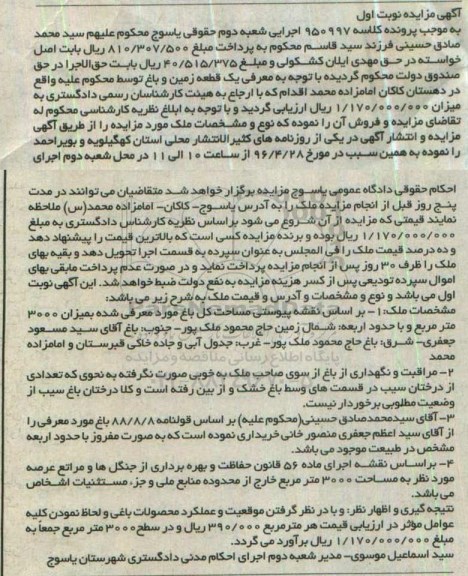 آگهی مزایده نوبت اول
به موجب پرونده کلاسه ۹۵۰۹۹۷ اجرایی شعبه دوم حقوقی یاسوج محکوم علیهم سید محمد
صادق حسینی فرزند سید قاسم محکوم به پرداخت مبلغ ۸۱۰/۳۰۷/۵۰۰ ریال بابت اصل
خواسته در حق مهدی ایلان کشکولی و مبلغ ۴۰/۵۱۵/۳۷۵ ریال بابت حق‌الاجرا در حق
صندوق دولت محکوم گردیده با توجه به معرفی یک قطعه زمین و باغ توسط محکوم علیه واقع
در دهستان کاکان امامزاده محمد اقدام که با ارجاع به هیئت کارشناسان رسمی دادگستری به
میزان ۱/۱۷۰/۰۰۰/۰۰۰ ریال ارزیابی گردید و با توجه به ابلاغ نظریه کارشناسی محکوم له
تقاضای مزایده و فروش آن را نموده که نوع و مشخصات ملک مورد مزایده را از طریق آگهی
مزایده و انتشار آگهی در یکی از روزنامه های کثیرالانتشار محلی استان کهگیلویه و بویراحمد
را نموده به همین سبب در مورخ ۹۶/۴/۲۸ از ساعت ۱۰ الی ۱۱ در محل شعبه دوم اجرای
احکام حقوقی دادگاه عمومی یاسوج مزایده برگزار خواهد شد متقاضیان می توانند در مدت
پنج روز قبل از انجام مزایده ملک را به آدرس یاسوج- کاکان- امامزاده محمد(س) ملاحظه
نمایند قیمتی که مزایده از آن شروع می شود بر اساس نظریه کارشناس دادگستری به مبلغ
۱/۱۷۰/۰۰۰/۰۰۰ ریال بوده و برنده مزایده کسی است که بالاترین قیمت را پیشنهاد دهد
و ده درصد قیمت ملک را فی المجلس به عنوان سپرده به قسمت اجرا تحویل دهد و بقیه بهای
ملک را ظرف ۳۰ روز پس از انجام مزایده پرداخت نماید و در صورت عدم پرداخت مابقی بهای
اموال سپرده تودیعی پس از کسر هزینه مزایده به نفع دولت ضبط خواهد شد. این آگهی نوبت
اول می باشد و نوع و مشخصات و آدرس و قیمت ملک به شرح زیر می باشد:
مشخصات ملک: ۱- بر اساس نقشه پیوستی مساحت کل باغ مورد معرفی شده بمیزان ۳۰۰۰
متر مربع و با حدود اربعه: شمال زمین حاج محمود ملک پور- جنوب: باغ آقای سید مسعود
جعفری- شرق: باغ حاج محمود ملک پور- غرب: جدول آبی و جاده خاکی قبرستان و امامزاده
محمد
پایگاه اطلاع رسانی مناقصه و مزایده
۲- مراقبت و نگهداری از باغ از سوی صاحب ملک به خوبی صورت نگرفته به نحوی که تعدادی
از درختان سیب در قسمت های وسط باغ خشک و از بین رفته است و کلا درختان باغ سیب از
وضعیت مطلوبی برخوردار نیست.
۳- آقای سیدمحمدصادق حسینی(محکوم علیه) بر اساس قولنامه ۸۸/۸/۸ باغ مورد معرفی را
از آقای سید اعظم جعفری منصور خانی خریداری نموده است که به صورت مفروز با حدود اربعه
مشخص در طبیعت موجود می باشد.
۴- براساس نقشه اجرای ماده ۵۶ قانون حفاظت و بهره برداری از جنگل ها و مراتع عرصه
مورد نظر به مساحت ۳۰۰۰ متر مربع خارج از محدوده منابع ملی و جزء مستثنیات اشخاص
می باشد.
نتیجه گیری و اظهار نظر: و با در نظر گرفتن موقعیت و عملکرد محصولات باغی و لحاظ نمودن کلیه
عوامل مؤثر در ارزیابی قیمت هر مترمربع ۳۹۰/۰۰۰ ریال و در سطح ۳۰۰۰ متر مربع جمعاً به
مبلغ ۱/۱۷۰/۰۰۰/۰۰۰ ریال برآورد می گردد.
سید اسماعیل موسوی- مدیر شعبه دوم اجرای احکام مدنی دادگستری شهرستان یاسوج